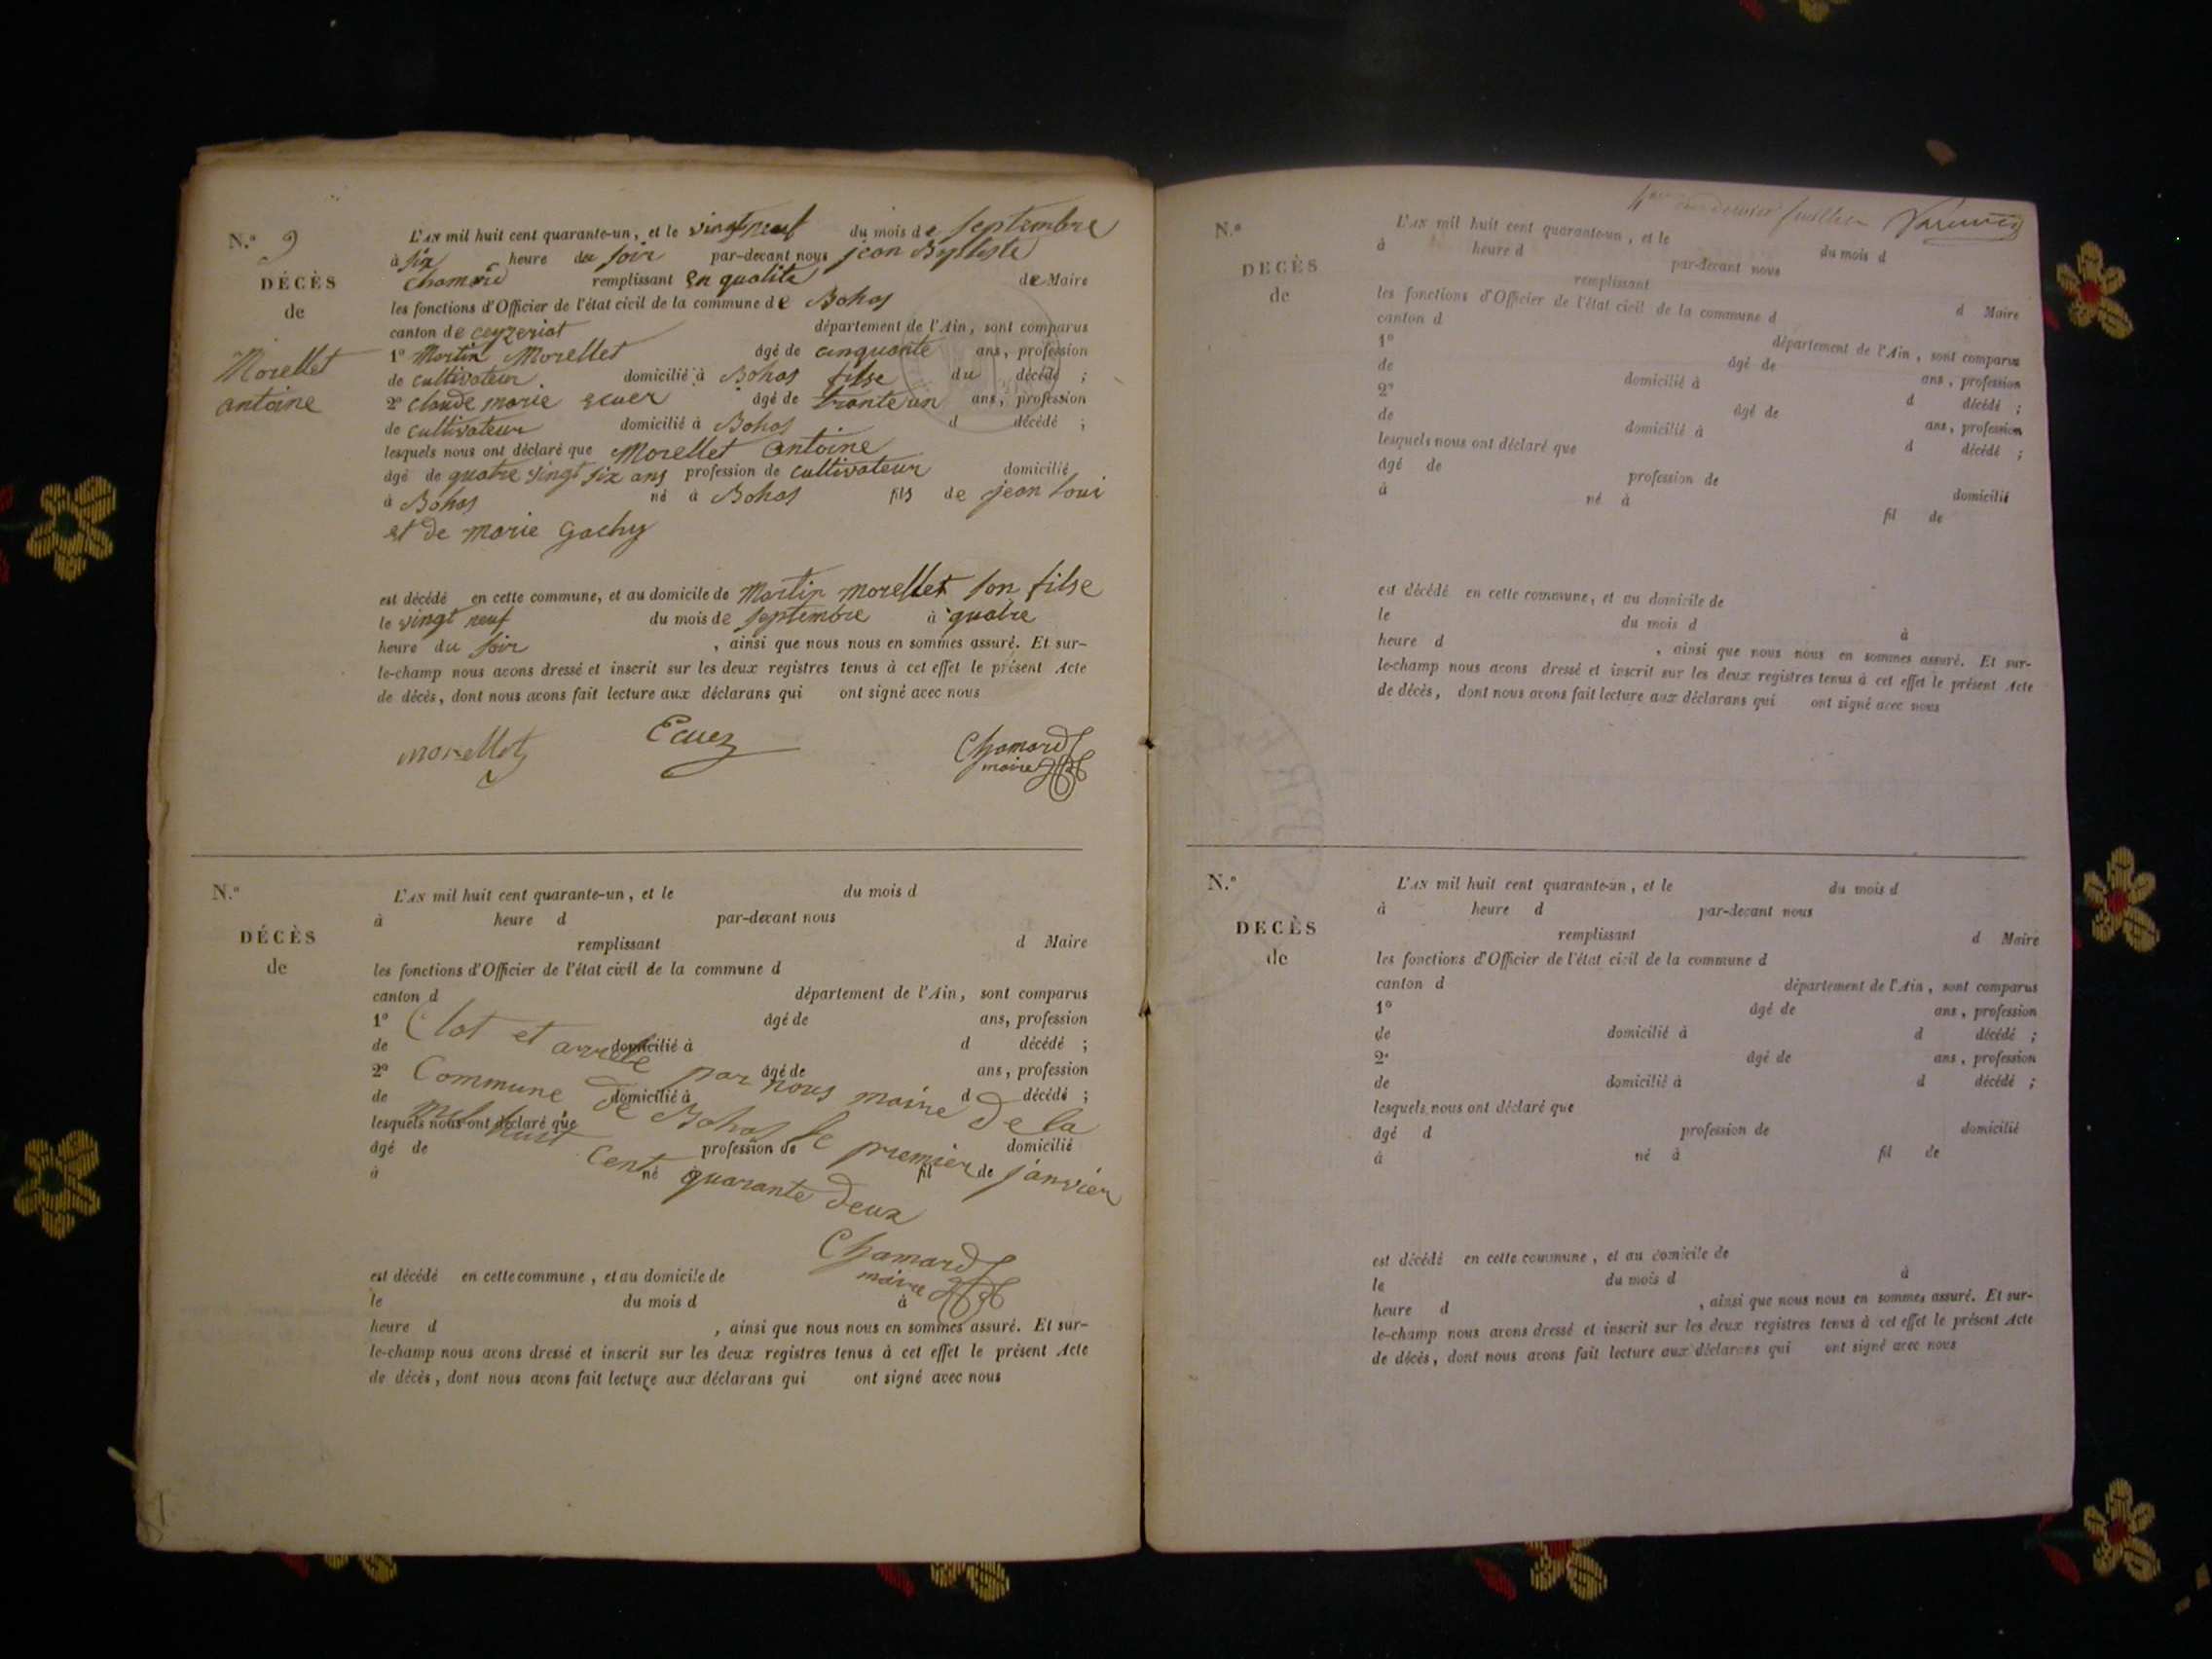 N.° 9
DÉCÈS
de
Morellet
antoine
L'AN mil huit cent quarante-un, et le vingt neuf du mois de septembre
à six heure du soir par-devant nous jean Baptiste
Chamard remplissant en qualité de Maire
les fonctions d'Officier de l'état civil de la commune de Bohas
canton de ceyzeriat département de l'Ain, sont comparus
1° Martin Morellet âgé de cinquante ans, profession
de cultivateur domicilié à Bohas filse du décédé ;
2° claude marie Ecuer âgé de trante un ans, profession
de cultivateur domicilié à Bohas d décédé ;
lesquels nous ont déclaré que Morellet Antoine
âgé de quatre vingt six ans profession de cultivateur domicilié
à Bohas né à Bohas fils de jean loui
et de marie Gachy
est décédé en cette commune, et au domicile de Martin morellet son filse
le vingt neuf du mois de septembre à quatre
heure du soir , ainsi que nous nous en sommes assuré. Et sur-
le-champ nous avons dressé et inscrit sur les deux registres tenus à cet effet le présent Acte
de décès, dont nous avons fait lecture aux déclarans qui ont signé avec nous
morellet Ecuer Chamard
maire
N.°
DÉCÈS
de
L'AN mil huit cent quarante-un, et le du mois d
à heure d par-devant nous
remplissant d Maire
les fonctions d'Officier de l'état civil de la commune d
canton d département de l'Ain, sont comparus
1° âgé de ans, profession
de domicilié à d décédé ;
2° âgé de ans, profession
de domicilié à d décédé ;
lesquels nous ont déclaré que
âgé de profession de domicilié
à né à fil de
Clot et arreté par nous maire de la
Commune de Bohas le premier janvier
mil huit Cent quarante deux
Chamard
maire
est décédé en cette commune, et au domicile de
le du mois d à
heure d , ainsi que nous nous en sommes assuré. Et sur-
le-champ nous avons dressé et inscrit sur les deux registres tenus à cet effet le présent Acte
de décès, dont nous avons fait lecture aux déclarans qui ont signé avec nous
dernier feuillet
N.°
DÉCÈS
de
L'AN mil huit cent quarante-un, et le du mois d
à heure d par-devant nous
remplissant d Maire
les fonctions d'Officier de l'état civil de la commune d
canton d département de l'Ain, sont comparus
1° âgé de ans, profession
de domicilié à d décédé ;
2° âgé de ans, profession
de domicilié à d décédé ;
lesquels nous ont déclaré que
âgé de profession de domicilié
à né à fil de
est décédé en cette commune, et au domicile de
le du mois d à
heure d , ainsi que nous nous en sommes assuré. Et sur-
le-champ nous avons dressé et inscrit sur les deux registres tenus à cet effet le présent Acte
de décès, dont nous avons fait lecture aux déclarans qui ont signé avec nous
N.°
DÉCÈS
de
L'AN mil huit cent quarante-un, et le du mois d
à heure d par-devant nous
remplissant d Maire
les fonctions d'Officier de l'état civil de la commune d
canton d département de l'Ain, sont comparus
1° âgé de ans, profession
de domicilié à d décédé ;
2° âgé de ans, profession
de domicilié à d décédé ;
lesquels nous ont déclaré que
âgé d profession de domicilié
à né à fil de
est décédé en cette commune, et au domicile de
le du mois d à
heure d , ainsi que nous nous en sommes assuré. Et sur-
le-champ nous avons dressé et inscrit sur les deux registres tenus à cet effet le présent Acte
de décès, dont nous avons fait lecture aux déclarans qui ont signé avec nous